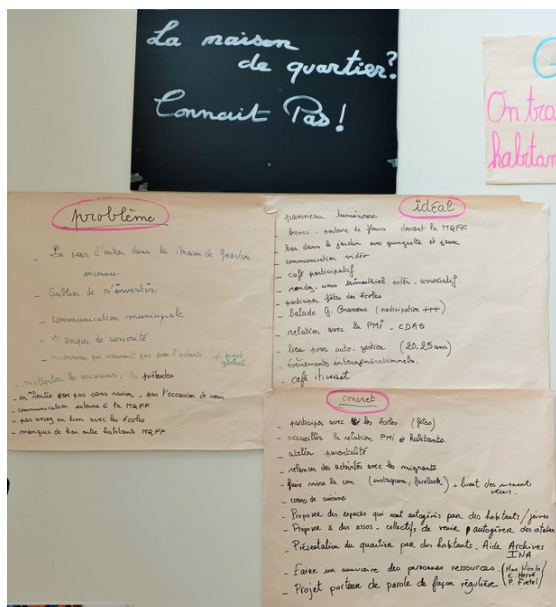 La maison
de quartier?
Connait Pas!
On tra
habitan
problème
- La peur d'entrer dans la Maison de Quartier
inconnu
- Oublier de s'investir
- communication municipale
- Manque de curiosité
- personnes que viennent que pour l'activité
- multiplier les occasions, les prétextes
- on rentre pas sans raison - pas l'occasion de venir
- communication externe à la MQFF
- pas assez en lien avec les écoles
- manque de lien entre habitants MQFF
idéal
- panneau lumineux
- bancs - parterre de fleurs devant la MQFF
- bar dans le jardin avec guinguette et jeux
- communication vidéo
- café participatif
- rendez-vous trimestriel inter-associatif
- participer fêtes des écoles
- balade G. Brassens (participation +++)
- relation avec la PMi - CDAS
- lieu pour auto-gestion (20-25 ans)
- événements intergénérationnels.
- café itinérant
concret
- participer avec les écoles. (fêtes)
- accueillir la relation PMi et habitants.
- atelier parentalité
- relancer des activités avec les migrants
- faire mine la com (instagram, facebook) + livret des
- cours de cuisine
- Proposer des espaces qui sont autogérés par des habitants/jeunes
- Proposer à des assos - collectifs de venir autogérer des atelier
- Présentation du quartier par des habitants - Aide Archives
INA
- Faire un annuaire des personnes ressources.
- Projet porteur de parole de façon régulière